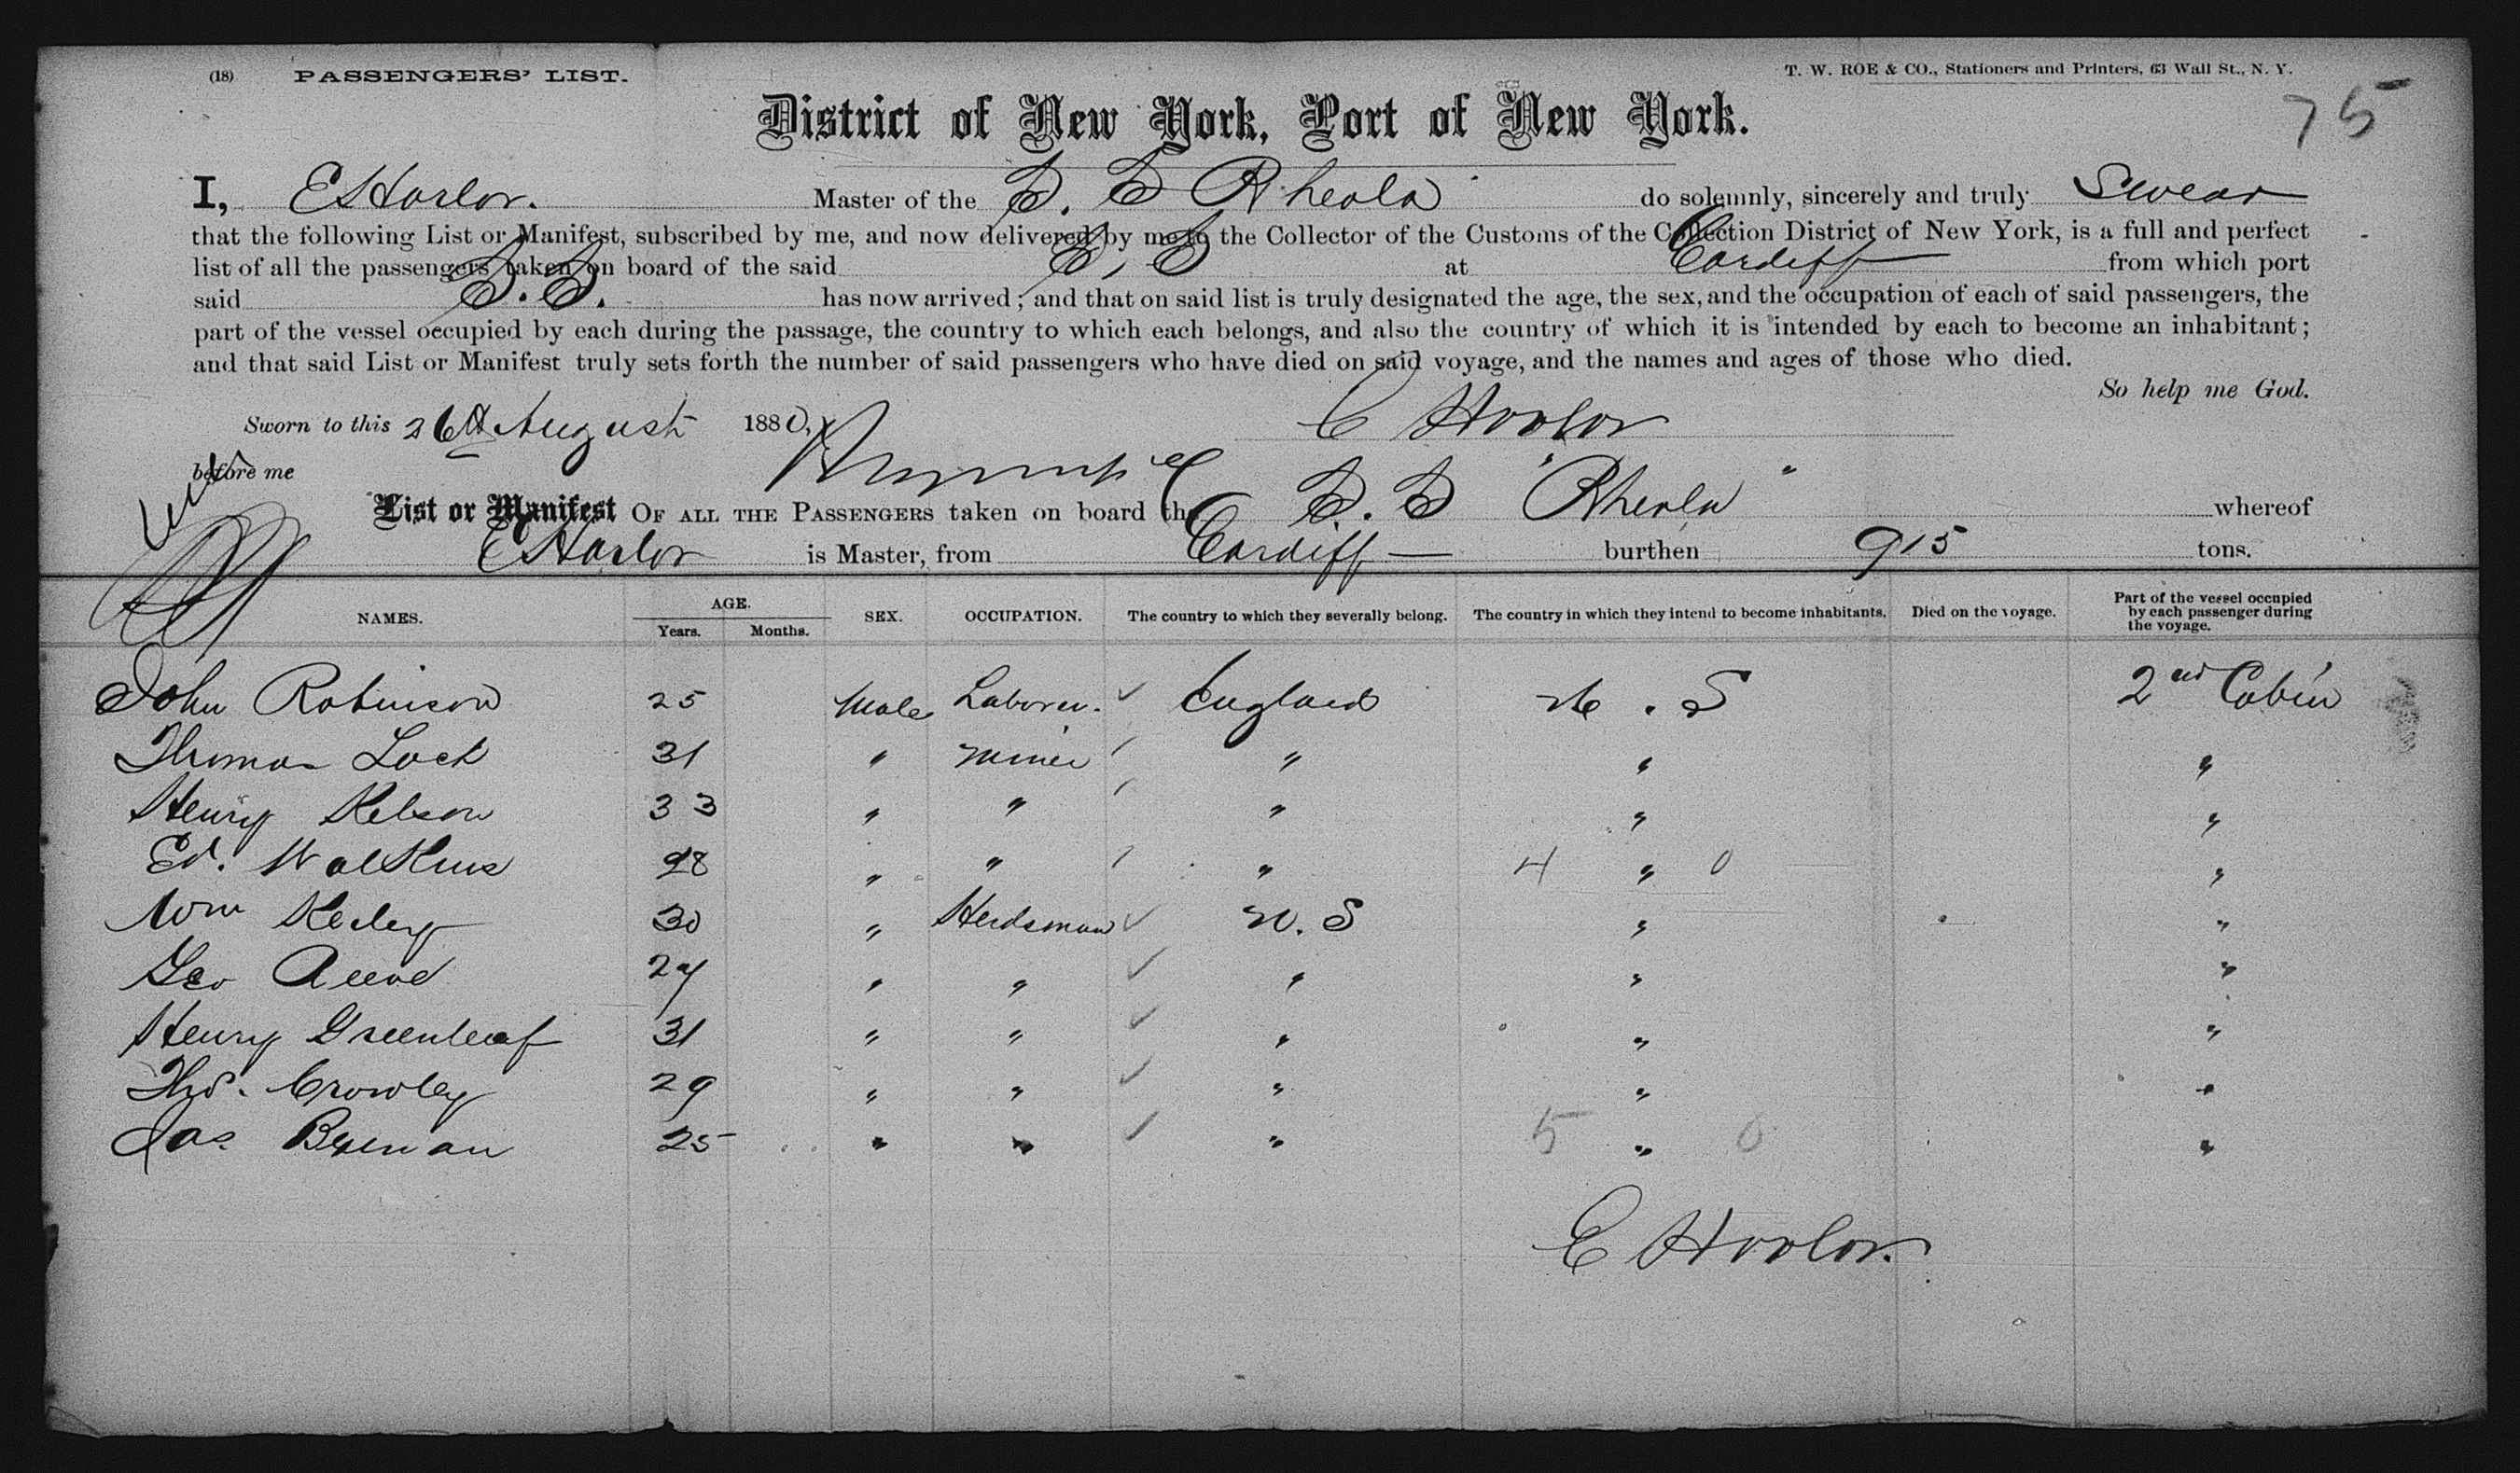 (18) PASSENGERS' LIST.
T. W. ROE & CO., Stationers and Printers, 63 Wall St., N. Y.
75
District of New York, Port of New York.
I, E Harlor. Master of the S. S Rheola do solemnly, sincerely and truly Swear
that the following List or Manifest, subscribed by me, and now delivered by me to the Collector of the Customs of the Collection District of New York, is a full and perfect
list of all the passengers taken on board of the said S. S at Cardiff from which port
said S. S. has now arrived; and that on said list is truly designated the age, the sex, and the occupation of each of said passengers, the
part of the vessel occupied by each during the passage, the country to which each belongs, and also the country of which it is intended by each to become an inhabitant;
and that said List or Manifest truly sets forth the number of said passengers who have died on said voyage, and the names and ages of those who died.
So help me God.
Sworn to this 26th August 1880, E Harlor
before me
List or Manifest OF ALL THE PASSENGERS taken on board the S. S "Rheola" whereof
E Harlor is Master, from Cardiff — burthen 915 tons.
NAMES. AGE. Years. Months. SEX. OCCUPATION. The country to which they severally belong. The country in which they intend to become inhabitants. Died on the voyage. Part of the vessel occupied by each passenger during the voyage.
John Robinson 25 Male Laborer. ✓ England U. S 2nd Cabin
Thomas Lock 31 " Miner " " "
Henry Kelson 33 " " " " "
Ed. Watkins 28 " " " 4 " 0 "
Wm Keiley 30 " Herdsman ✓ U. S " "
Geo Reeve 27 " " ✓ " " "
Henry Greenleaf 31 " " ✓ " " "
Thos. Crowley 29 " " ✓ " " "
Jas Brenan 25 " " ✓ " 5 " 0 "
E Harlor.